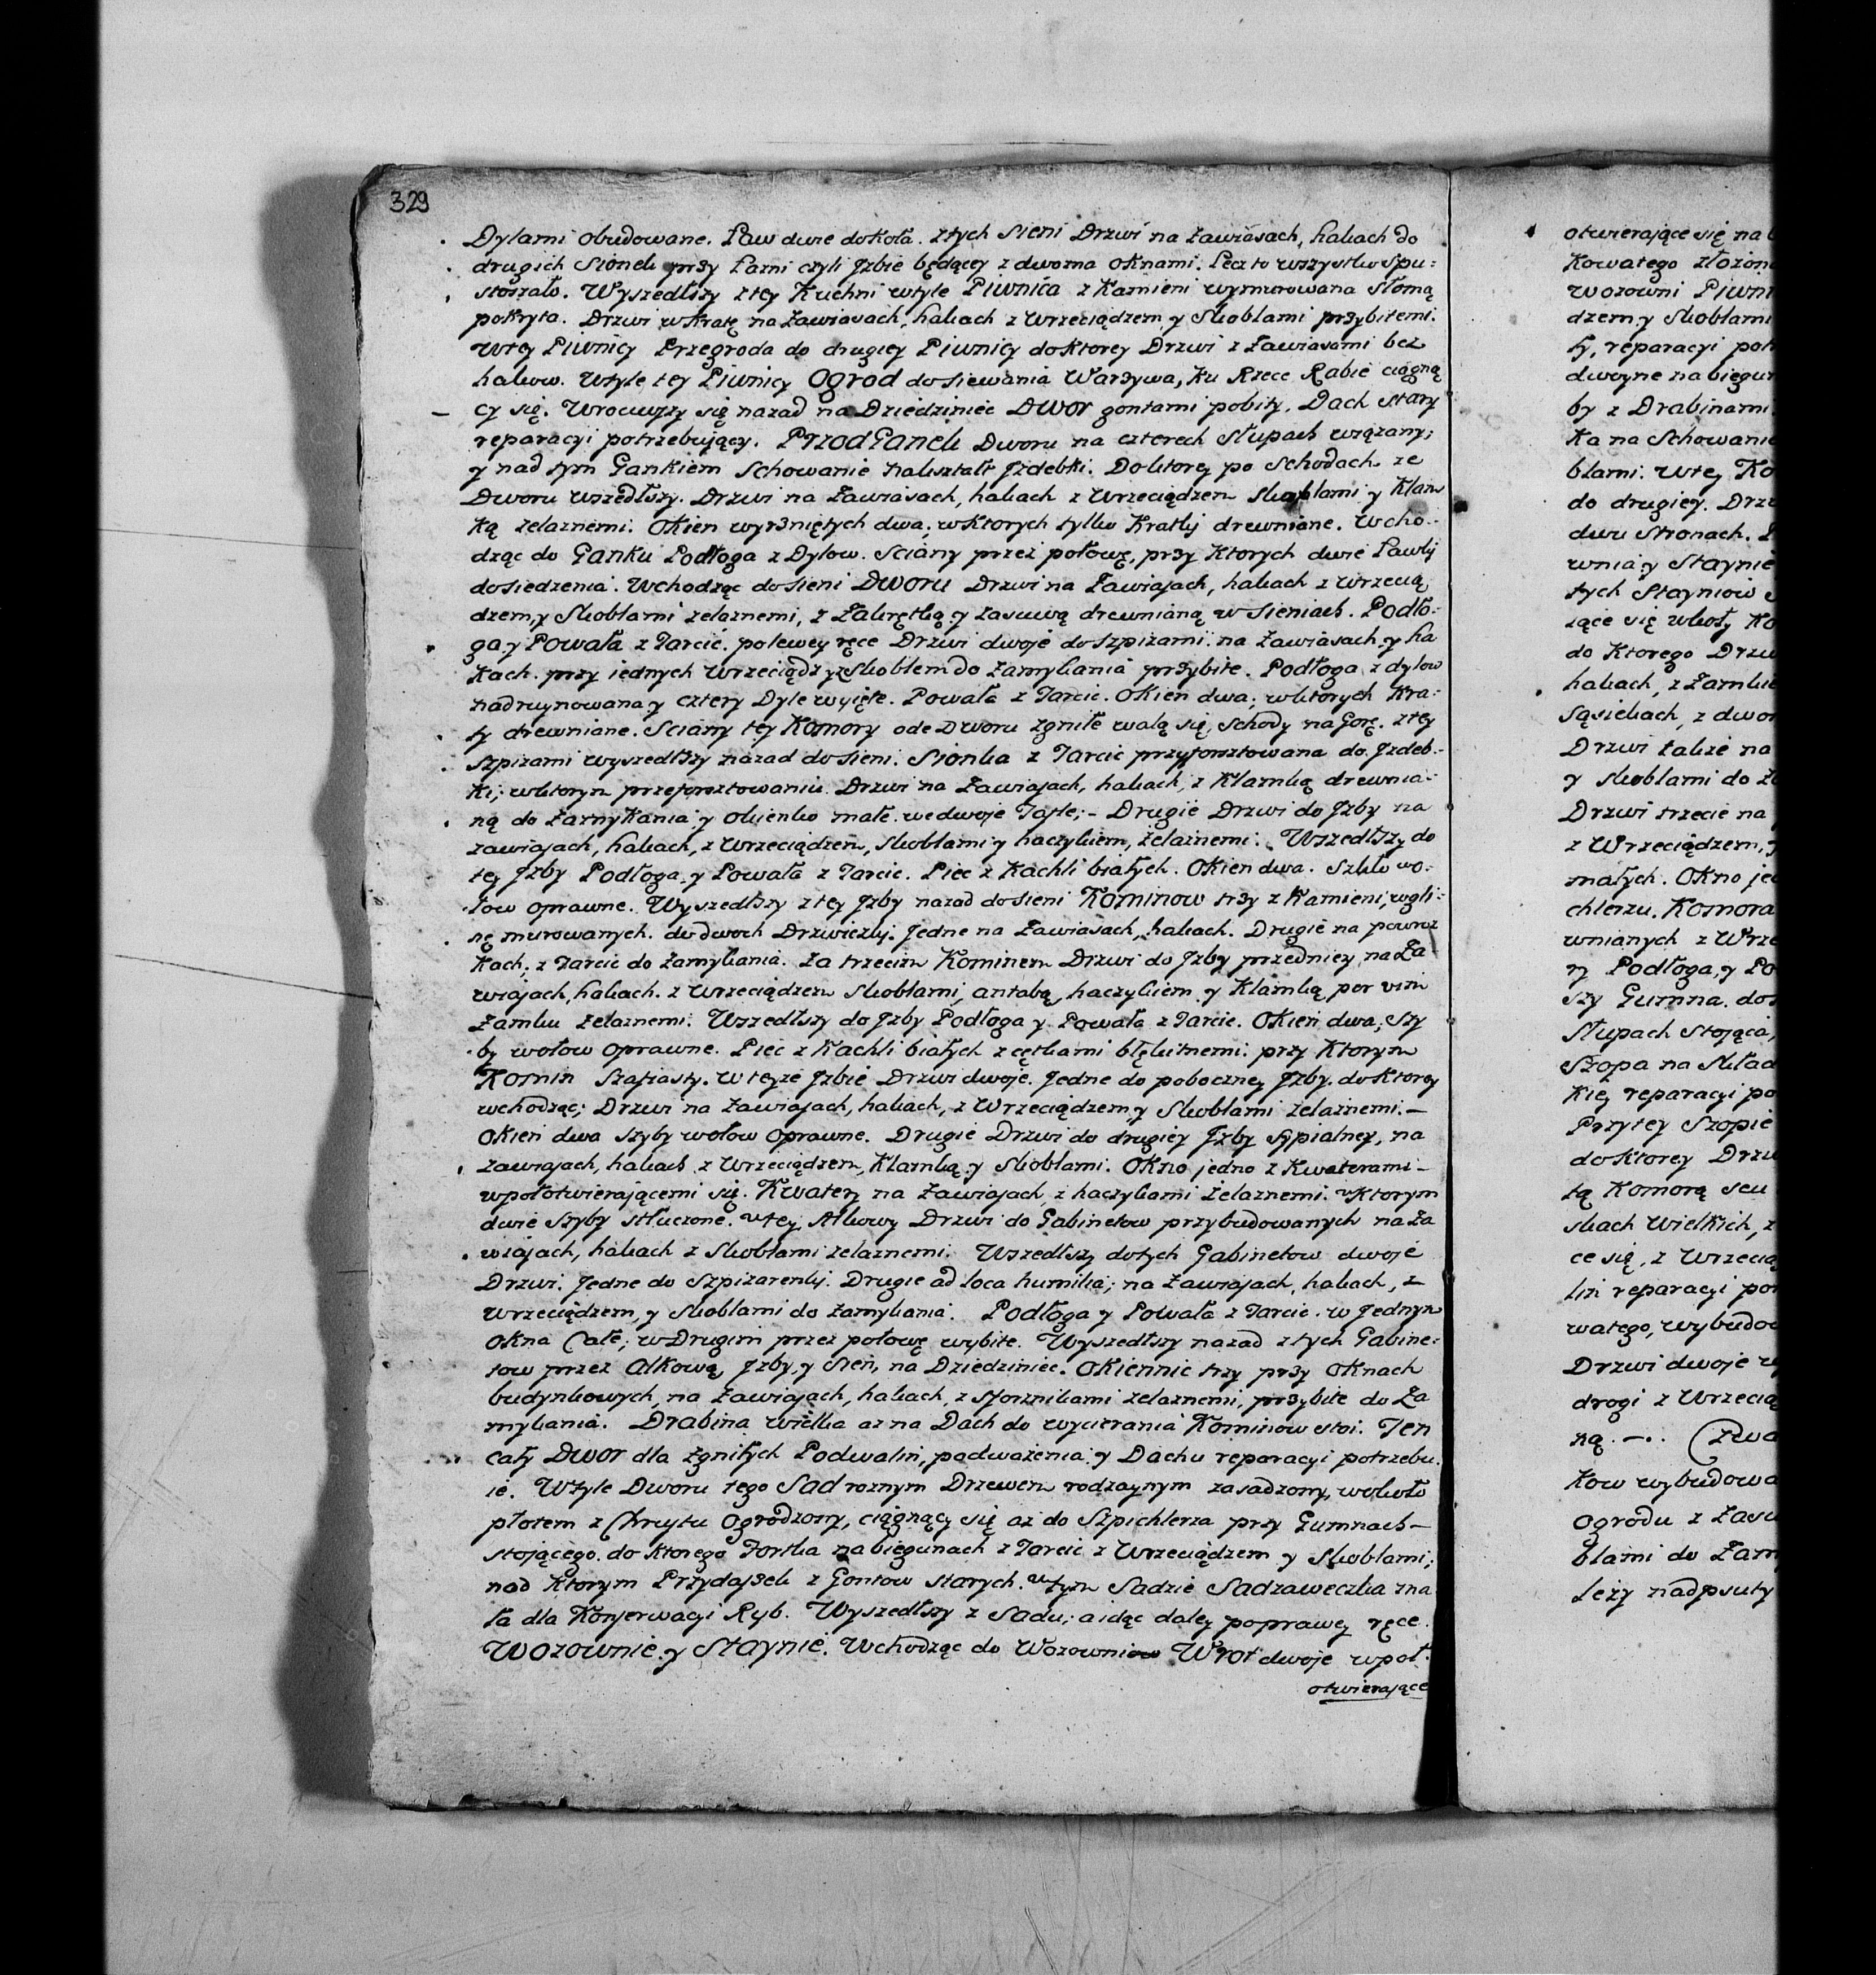 329
Dylami obudowane. Ław dwie dokoła. Ztych Sieni Drzwi na Zawiasach, hakach do
drugich Sionek przy Łazni czyli Jzbie będącey z dwoma oknami. Lecz to wszystko spu:
stoszało. Wyszedłszy z tey Kuchni wtyle Piwnica z Kamieni wymurowana słomą
pokryta. Drzwi w Kratę na Zawiasach, hakach z Wrzeciądzem y Skoblami przybitemi.
Wtey Piwnicy Przegroda do drugiey Piwnicy do Ktorey Drzwi z Zawiasami bez
hakow. Wtyle tey Piwnicy Ogrod do siewania Warzywa, Ku Rzece Rabie ciągną
cy się. Wrociwszy się nazad na Dziedziniec Dwor gontami pobity. Dach stary
reparacyi potrzebujący. Przod Ganek Dworu na czterech Słupach wiązany;
y nad tym Gankiem Schowanie nakształt Jzdebki. Do Ktorey po Schodach ze
Dworu wszedłszy. Drzwi na Zawiasach, hakach z Wrzeciądzem Skoblami y Klam
Ką zelaznemi. Okien wyrzniętych dwa, w Ktorych tylko Kratki drewniane. Wcho:
dząc do Ganku Podłoga z Dylow. Sciany przez połowę, przy Ktorych dwie Ławki
do siedzenia. Wchodząc do sieni Dworu Drzwi na Zawiasach, hakach z Wrzecią
dzem y Skoblami zelaznemi, z Zakrętką y zasuwą drewnianą w Sieniach. Podło:
ga y Powała z Tarcic. po lewey ręce Drzwi dwoje do Szpizarni na Zawiasach y ha
Kach. przy jednych Wrzeciądz y z Skoblem do zamykania przybite. Podłoga z dylow
nadruynowana y cztery Dyle wyięte. Powała z Tarcic. Okien dwa; w Ktorych Kra:
ty drewniane. Sciany tey Komory ode Dworu zgniłe walą się. Schody na Gorę. z tey
Szpizarni wyszedłszy nazad do sieni. Sionka z Tarcic przyforsztowana do Jzdeb:
Ki; w Ktorym przeforsztowaniu Drzwi na Zawiasach, hakach, z Klamką drewnia:
ną do Zamykania y Okienko małe we dwoje Tafle;- Drugie Drzwi do Jzby na
zawiasach, hakach, z Wrzeciądzem, Skoblami y haczykiem, żelaznemi. Wszedłszy do
tey Jzby Podłoga y Powała z Tarcic. Piec z Kachli białych. Okien dwa. Szkło w o:
łow oprawne. Wyszedłszy z tey Jzby nazad do sieni Kominow trzy z Kamieni, w gli:
nę murowanych. do dwoch Drzwiczki. Jedne na Zawiasach, hakach. Drugie na powroz
Kach, z Tarcic do zamykania. Za trzecim Kominem Drzwi do Jzby przedniey na Za
wiasach, hakach. z Wrzeciądzem Skoblami, antabą, haczykiem y Klamką per vim
Zamku zelaznemi. Wszedłszy do Jzby Podłoga y Powała z Tarcic. Okien dwa, Szy
by w ołow oprawne. Piec z Kachli białych z cętkami błękitnemi. przy Ktorym
Komin Szafiasty. W teyze Jzbie Drzwi dwoje. Jedne do poboczney Jzby do Ktorey
wchodząc; Drzwi na Zawiasach, hakach, z Wrzeciądzem y Skoblami zelaznemi. —
Okien dwa szyby w ołow oprawne. Drugie Drzwi do drugiey Jzby Sypialney, na
zawiasach, hakach z Wrzeciądzem, Klamką y Skoblami. Okno jedno z Kwaterami –
wpołotwierającemi się. Kwatery na Zawiasach z haczykami żelaznemi. w Ktorym
dwie Szyby stłuczone. w tey Alkowy Drzwi do Gabinetow przybudowanych na Za
wiasach, hakach z Skoblami zelaznemi. Wszedłszy do tych Gabinetow dwoje
Drzwi. Jedne do Szpizarenki. Drugie ad loca humilia; na Zawiasach, hakach, z
Wrzeciądzem, y Skoblami do zamykania. Podłoga y Powała z Tarcic. w Jednym
Okna Całe; w Drugim przez połowę wybite. Wyszedłszy nazad z tych Gabine:
tow przez Alkową, Jzby, y Sień, na Dziedziniec. Okiennic trzy przy Oknach
budynkowych, na Zawiasach, hakach, z Sforznikami zelaznemi, przybite do Za
mykania. Drabina wielka az na Dach do wycierania Kominow stoi. Ten
cały Dwor dla zgniłych Podwalin, podważenia y Dachu reparacyi potrzebu
ie. Wtyle Dworu tego Sad roznym Drzewem rodzaynym zasadzony, wokoło
płotem z Chrustu Ogrodzony, ciągnący się az do Szpichlerza przy Gumnach –
stojącego. do Ktorego Fortka na biegunach z Tarcic z Wrzeciądzem y Skoblami;
nad Ktorym Przydaszek z Gontow starych. w tym Sadzie Sadzaweczka ma
ła dla Konserwacyi Ryb. Wyszedłszy z Sadu; a idąc daley po prawey ręce.
Wozownie y Staynie. Wchodząc do Wozowni Wrot dwoje wpoł.
otwierające
otwierające się na
Kowatego złożon
wozowni Piwni
dzem y Skoblami
ty, reparacyi pot
dwoyne na biegun
by z Drabinami
Ka na Schowanie
blami. Wtey Ko
do drugiey. Drz
dwu Stronach.
wnia y Staynie
tych Stayniow
iące się wkoły Ko
do Ktorego Drzw
hakach, z Zamkie
Sąsiekach, z dwo
Drzwi takze na
y skoblami do Za
Drzwi trzecie na
z Wrzeciądzem, y
małych. Okno je
chlerzu. Komora
wnianych z Wrze
ry Podłoga, y Po
szy Gumna. do
Słupach Stojąca,
Szopa na Skład
Kiey reparacyi po
Przy tey Szopie
do Ktorey Drzw
tą Komorą seu
skach Wielkich, z
ce się, z Wrzecią
lin reparacyi po
watego, wybudow
Drzwi dwoje w
drogi z Wrzecią
ną. —..
Kow wybudowa
Ogrodu z Zasu
blami do Zam
Leży nadpsuty